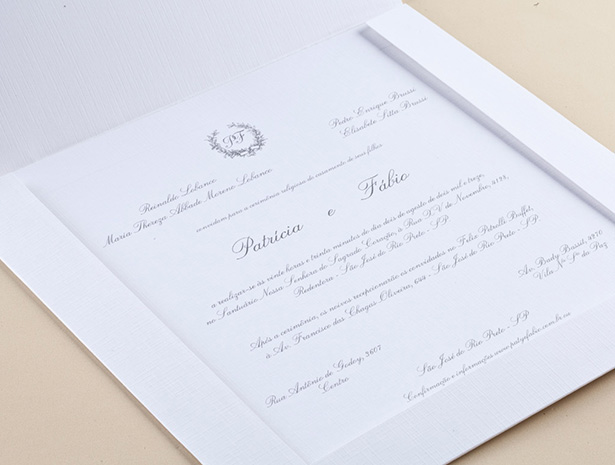 PF
Reinaldo Lobanco
Maria Thereza Abbade Moreno Lobanco
Pedro Enrique Brussi
Elisabete Sitta Brussi
convidam para a cerimônia religiosa do casamento de seus filhos
Patrícia e Fábio
a realizar-se às vinte horas e trinta minutos do dia dois de agosto de dois mil e treze,
no Santuário Nossa Senhora do Sagrado Coração, à Rua XV de Novembro, 4175,
Redentora - São José do Rio Preto - SP
Após a cerimônia, os noivos recepcionarão os convidados no Felix Petrolli Buffet,
à Av. Francisco das Chagas Oliveira, - São José do Rio Preto - SP
Rua Antônio de Godoy, 3607
Centro
Av. Bady Bassit,
Vila Nª Sª da Paz
São José do Rio Preto - SP
Confirmação e informações www.patyefabio.com.br